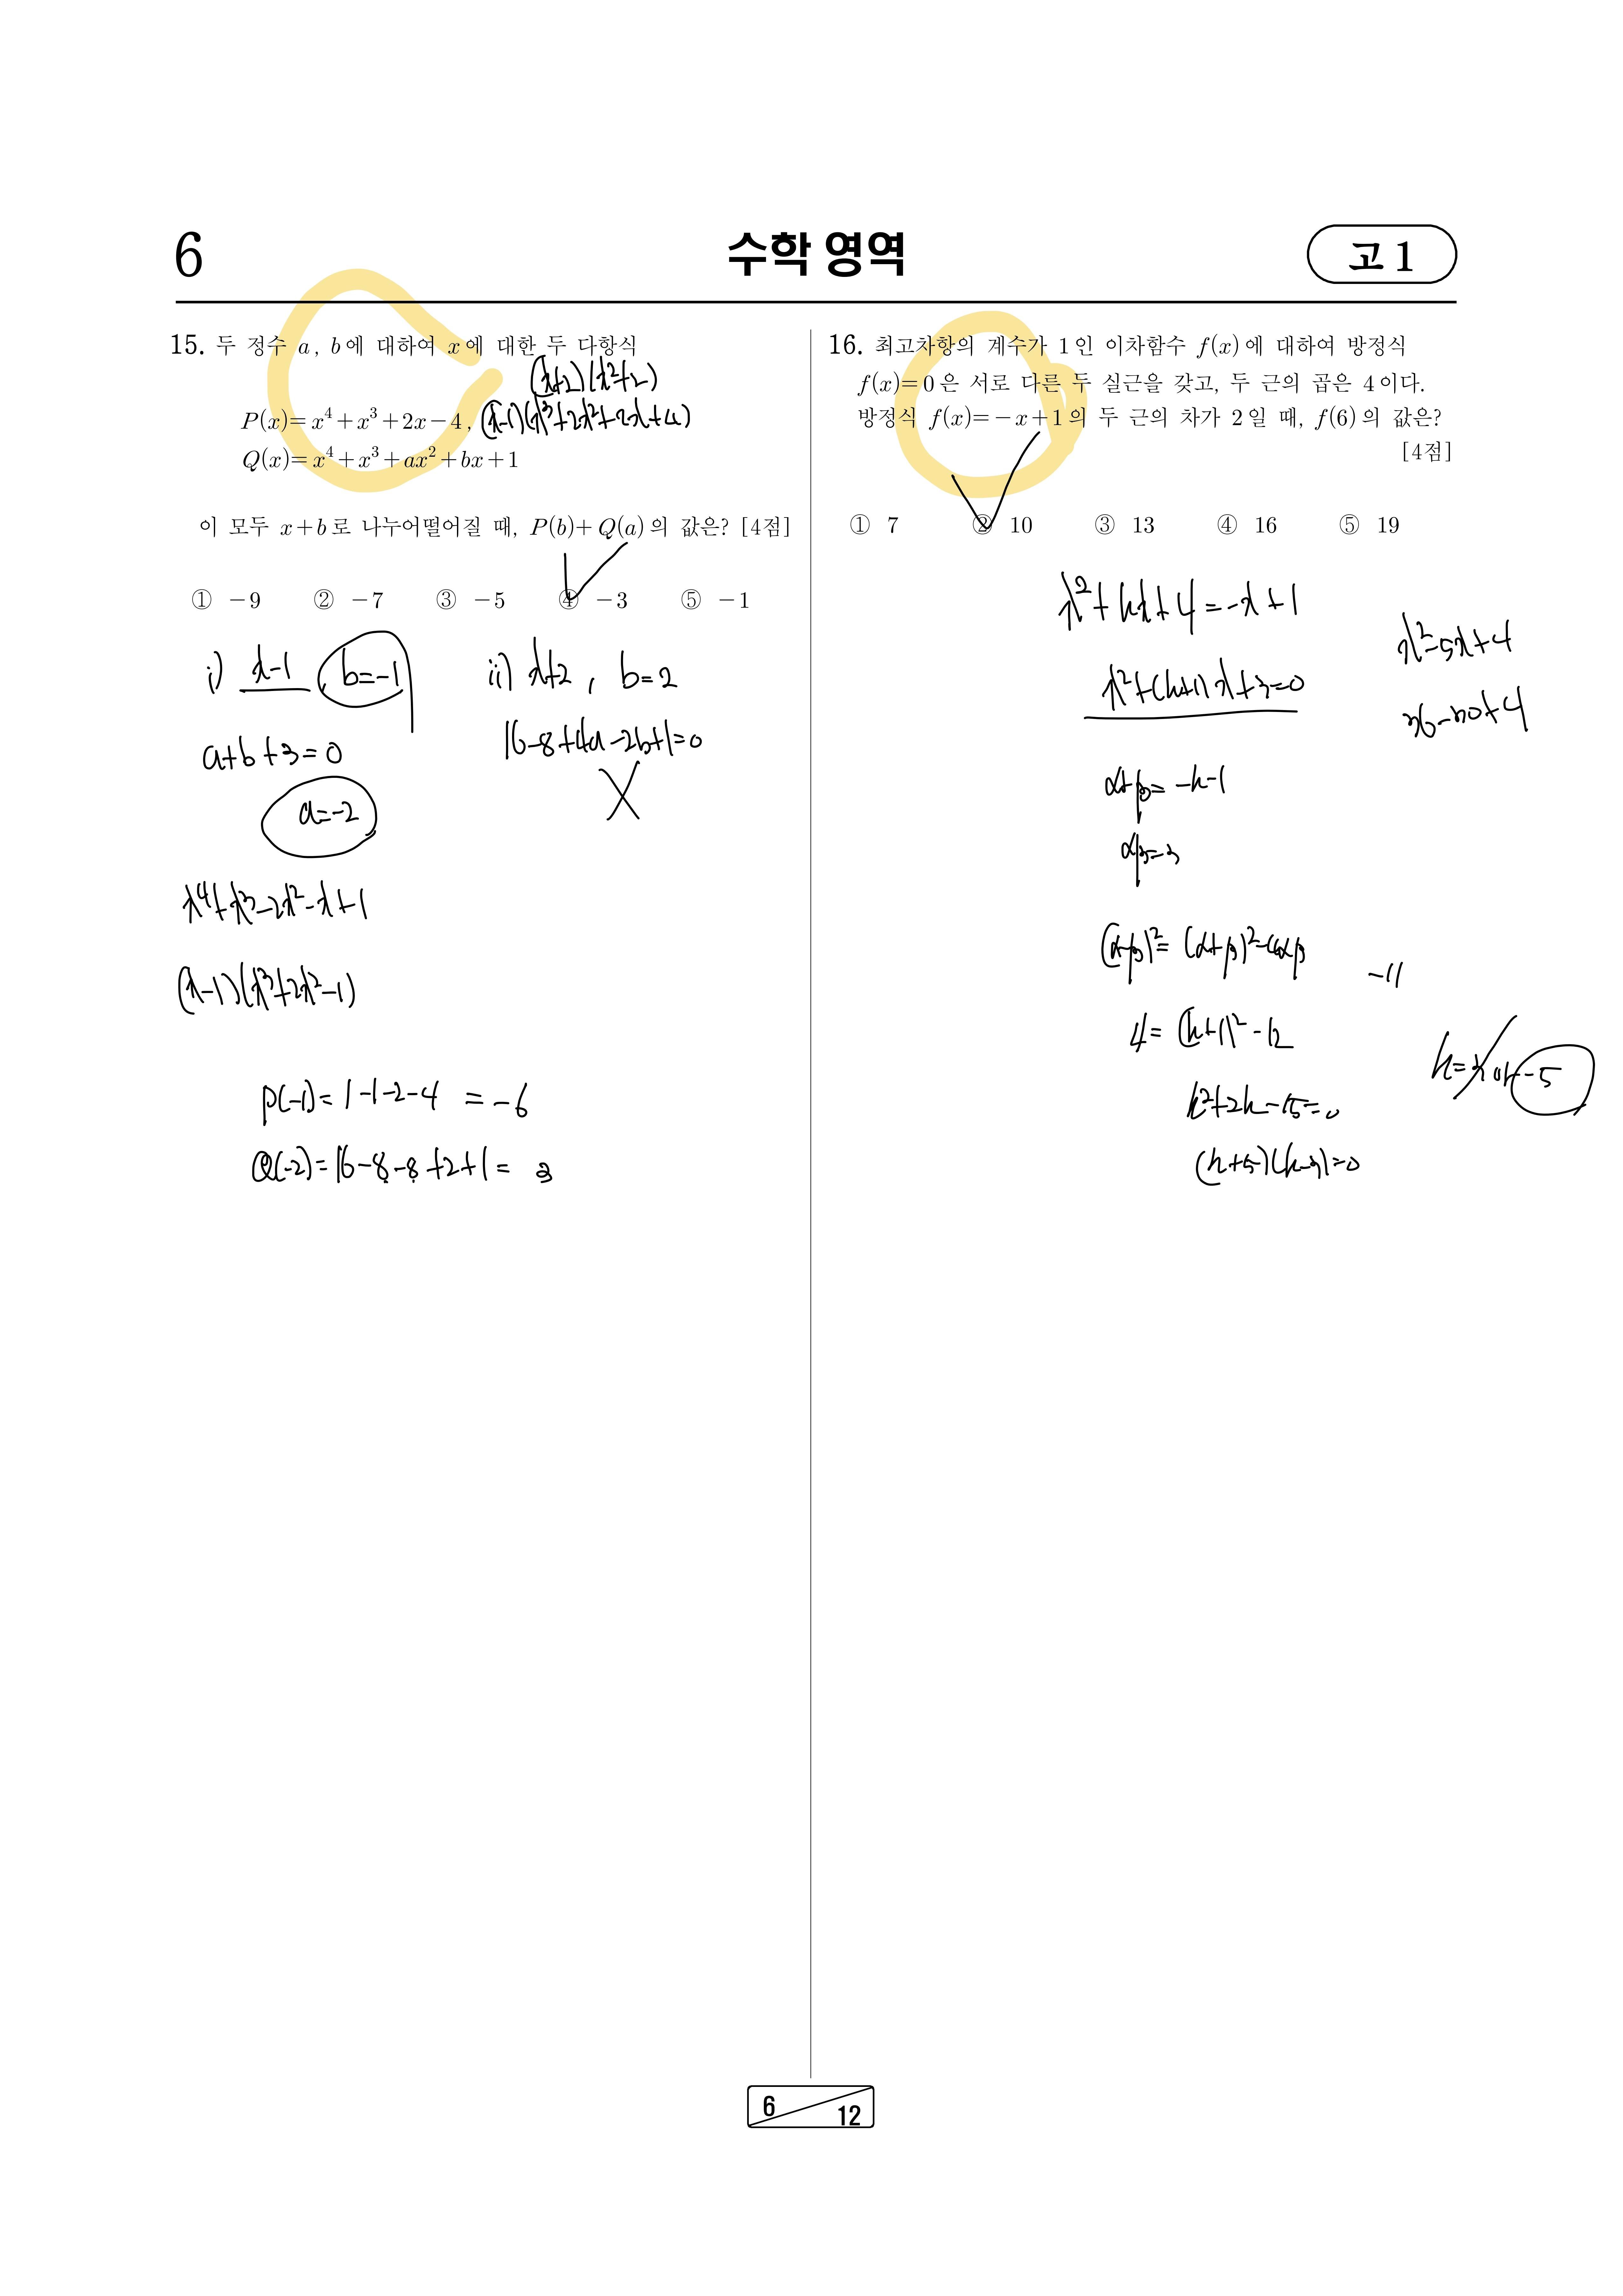 6
수학 영역
고 1
15. 두 정수 a, b에 대하여 x에 대한 두 다항식
(x+2)(x²+2)
P(x)=x⁴+x³+2x-4, (x-1)(x³+2x²+2x+4)
Q(x)=x⁴+x³+ax²+bx+1
이 모두 x+b로 나누어떨어질 때, P(b)+Q(a)의 값은? [4점]
① -9 ② -7 ③ -5 ④ -3 ⑤ -1
i) x-1 b=-1
a+b+3=0
a=-2
x⁴+x³-2x²-x+1
(x-1)(x³+2x²-1)
ii) x+2, b=2
16-8+4a-2b+1=0
P(-1)=1-1-2-4 =-6
Q(-2)=16-8-8+2+1= 3
16. 최고차항의 계수가 1인 이차함수 f(x)에 대하여 방정식
f(x)=0은 서로 다른 두 실근을 갖고, 두 근의 곱은 4이다.
방정식 f(x)=-x+1의 두 근의 차가 2일 때, f(6)의 값은?
[4점]
① 7 ② 10 ③ 13 ④ 16 ⑤ 19
x²+kx+4=-x+1
x²+(k+1)x+3=0
α+β=-k-1
αβ=3
(α-β)²=(α+β)²-4αβ
4=(k+1)²-12
k²+2k-15=0
(k+5)(k-3)=0
x²-5x+4
36-30+4
-11
k=3 or -5
6
12